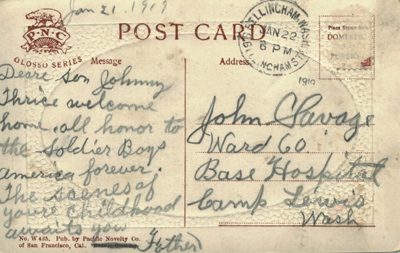 Jan 21. 1919
POST CARD
P-N-C
GLOSSO SERIES
Message
Address
BELLINGHAM, WASH.
JAN 22
6 PM
1919
BELLINGHAM STA.
Place Stamp Here
DOMESTIC
Deare Son Johnny
Thrice welcome
home. all honor to
the Soldier Boys
America forever.
The scenes of
youre childhood
awaits you
Father
John Savage
Ward CO.
Base Hospital
Camp Lewis
Wash
No. W 455. Pub. by Pacific Novelty Co.
of San Francisco, Cal.